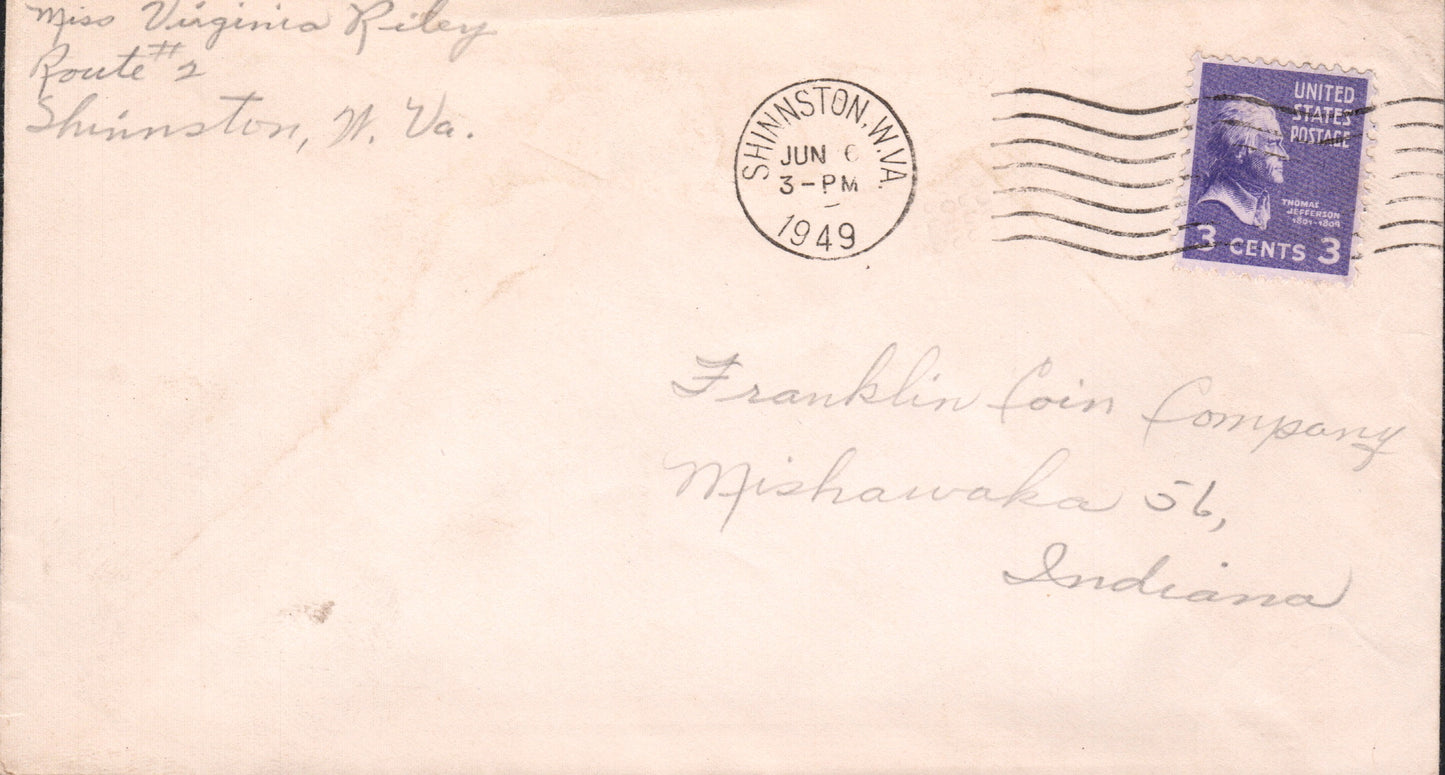 Miss Virginia Riley
Route #2
Shinnston, W. Va.
SHINNSTON, W.VA.
JUN 6
3-PM
1949
UNITED
STATES
POSTAGE
THOMAS
JEFFERSON
1801-1809
3 CENTS 3
Franklin Coin Company
Mishawaka 56,
Indiana